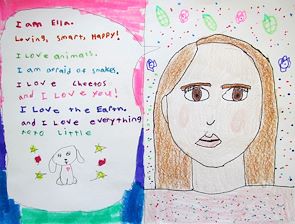 I am Ella.
Loving, Smart, Happy!
I Love animals.
I am afraid of snakes.
I Love cheetos
and I Love you!
I Love the Earth.
and I Love everything
little